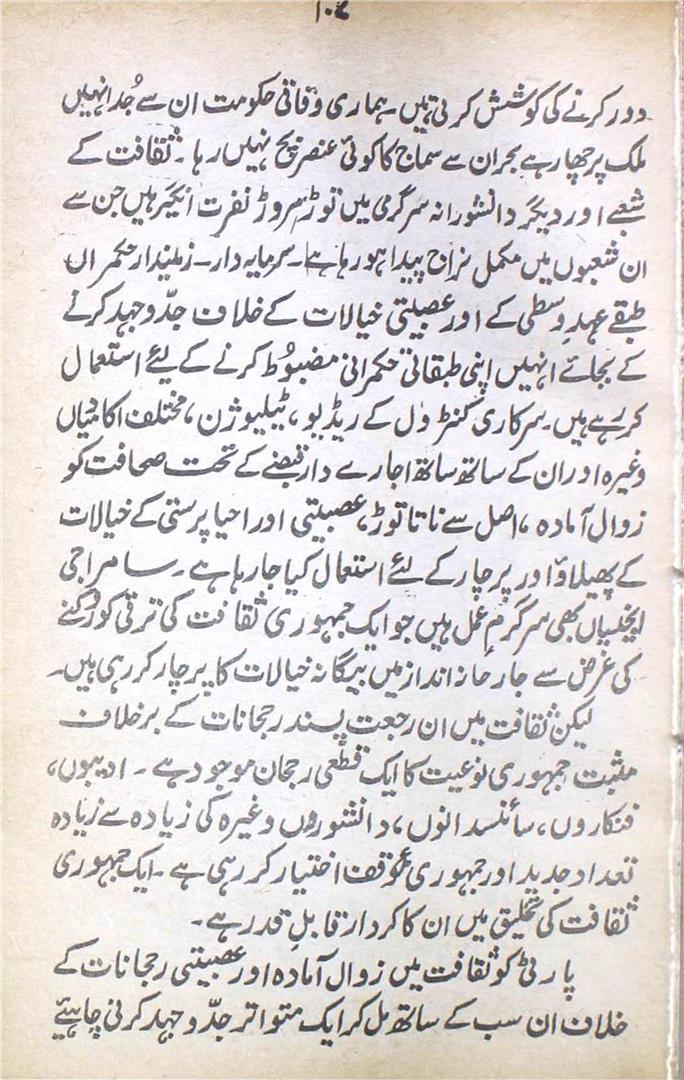 ۱۰۶
دور کرنے کی کوشش کرتی ہیں۔ ہماری وفاقی حکومت ان سے جُدا نہیں
ملک پر چھا رہے بحران سے سماج کا کوئی عنصر بچ نہیں رہا۔ ثقافت کے
شعبے اور دیگر دانشورانہ سرگرمی میں توڑ مروڑ نفرت انگیز ہیں جن سے
ان شعبوں میں مکمل نراج پیدا ہو رہا ہے۔ سرمایہ دار۔ زمیندار حکمراں
طبقے عہدِ وسطیٰ کے اور عصبیتی خیالات کے خلاف جدّ و جہد کرنے
کے بجائے انہیں اپنی طبقاتی حکمرانی مضبوُط کرنے کے لیئے استعمال
کر رہے ہیں۔ سرکاری کنٹرول کے ریڈیو، ٹیلیوژن، مختلف اکادمیاں
وغیرہ اور ان کے ساتھ ساتھ اجارے دار قبضے کے تحت صحافت کو
زوال آمادہ، اصل سے ناتا توڑ، عصبیتی اور احیا پرستی کے خیالات
کے پھیلاؤ اور پرچار کے لئے استعمال کیا جا رہا ہے۔ سامراجی
ایجنسیاں بھی سرگرمِ عمل ہیں جو ایک جمہوری ثقافت کی ترقی کو روکنے
کی غرض سے جارحانہ انداز میں بیگانہ خیالات کا پرچار کر رہی ہیں۔
لیکن ثقافت میں ان رجعت پسند رجحانات کے برخلاف
مثبت جمہوری نوعیت کا ایک قطعی رجحان موجود ہے۔ ادیبوں،
فنکاروں، سائنسدانوں، دانشوروں وغیرہ کی زیادہ سے زیادہ
تعداد جدید اور جمہوری موقف اختیار کر رہی ہے۔ ایک جمہوری
ثقافت کی تخلیق میں ان کا کردار قابلِ قدر ہے۔
پارٹی کو ثقافت میں زوال آمادہ اور عصبیتی رجحانات کے
خلاف ان سب کے ساتھ مل کر ایک متواتر جدّ و جہد کرنی چاہئیے